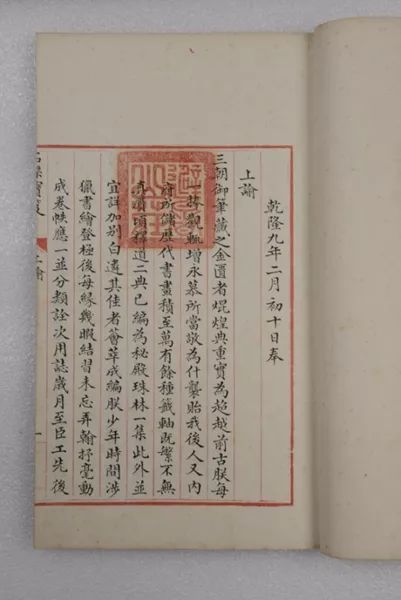 乾隆九年二月初十日奉
上諭
三朝御筆藏之金匱者焜煌典重實為超越前古朕每
一捧觀輒增永慕所當敬為什襲貽我後人又內
府所儲歷代書畫積至萬有餘種籤軸既繁不無
真贗頃釋道二典已編為秘殿珠林一集此外並
宜詳加別白遴其佳者薈萃成編朕少年時間涉
獵書繪登極後每緣幾暇結習未忘弄翰抒毫動
成卷帙應一並分類詮次用誌歲月至臣工先後
石渠寶笈
上諭
一